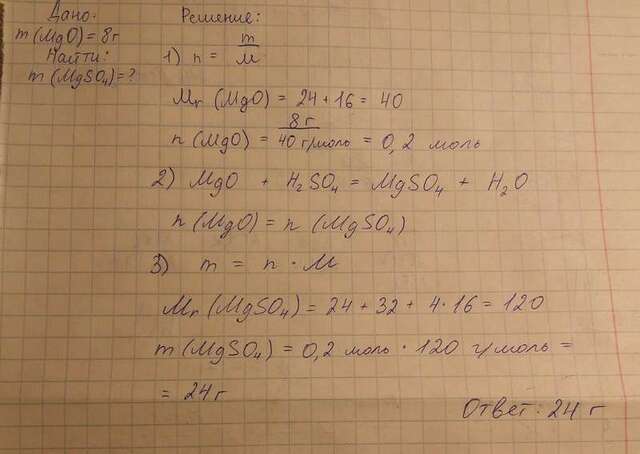 Дано:
m(MgO) = 8г
Найти:
m(MgSO₄) = ?
Решение:
1) n = m/M
Mr (MgO) = 24 + 16 = 40
n(MgO) = 8 г/40 г/моль = 0,2 моль
2) MgO + H₂SO₄ = MgSO₄ + H₂O
n(MgO) = n (MgSO₄)
3) m = n · M
Mr (MgSO₄) = 24 + 32 + 4·16 = 120
m(MgSO₄) = 0,2 моль · 120 г/моль =
= 24г
Ответ: 24 г